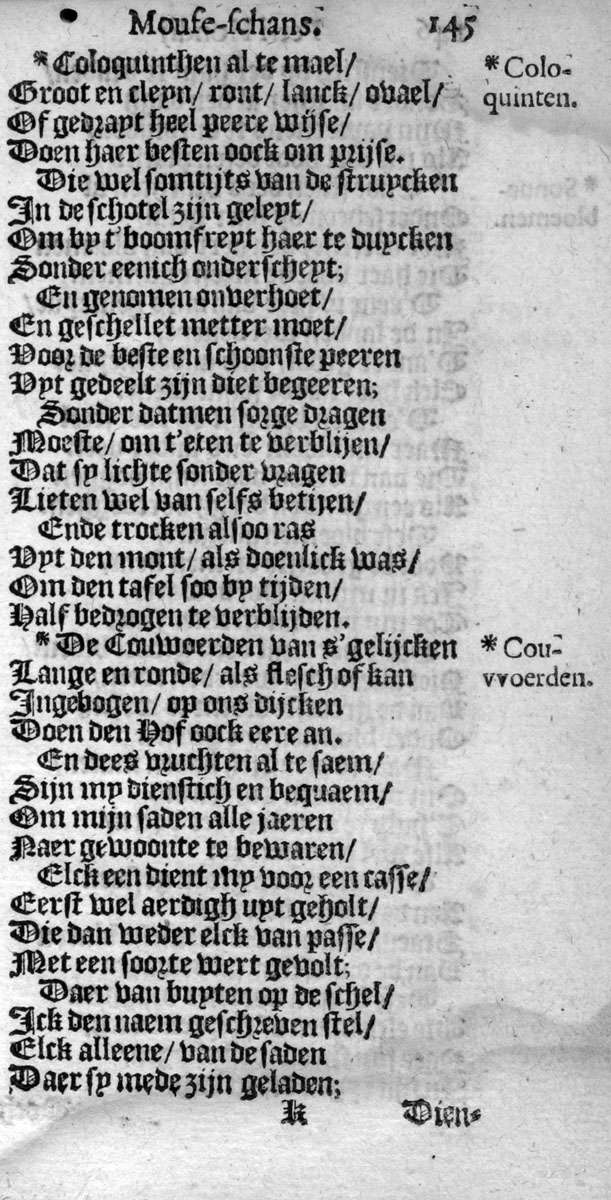 Moufe-schans. 145
* Coloquinthen al te mael/
Groot en cleyn/ ront/ lanck/ ovael/
Of gedrayt heel peere wyse/
Doen haer besten oock om prijse.
Die wel somtijts van de struycken
In de schotel zijn geleyt/
Om by t'boomfreyt haer te duycken
Sonder eenich onderscheyt;
En genomen onverhoet/
En geschellet metter moet/
Voor de beste en schoonste peeren
Vyt gedeelt zijn diet begeeren;
Sonder datmen sorge dragen
Moeste/ om t'eten te verblijen/
Dat sy lichte sonder vragen
Lieten wel van selfs betijen/
Ende trocken alsoo ras
Vyt den mont/ als doenlick was/
Om den tafel soo by tijden/
Half bedrogen te verblijden.
* De Couwoerden van s'gelijcken
Lange en ronde/ als flesch of kan
Ingebogen/ op ons dijcken
Doen den Hof oock eere an.
En dees vruchten al te saem/
Sijn my dienstich en bequaem/
Om mijn saden alle jaeren
Naer gewoonte te bewaren/
Elck een dient my voor een casse/
Eerst wel aerdigh uyt geholt/
Die dan weder elck van passe/
Met een soorte wert gevolt;
Daer van buyten op de schel/
Ick den naem geschreven stel/
Elck alleene/ van de saden
Daer sy mede zijn geladen;
K Dien-
* Colo-
quinten.
* Cou-
vvoerden.